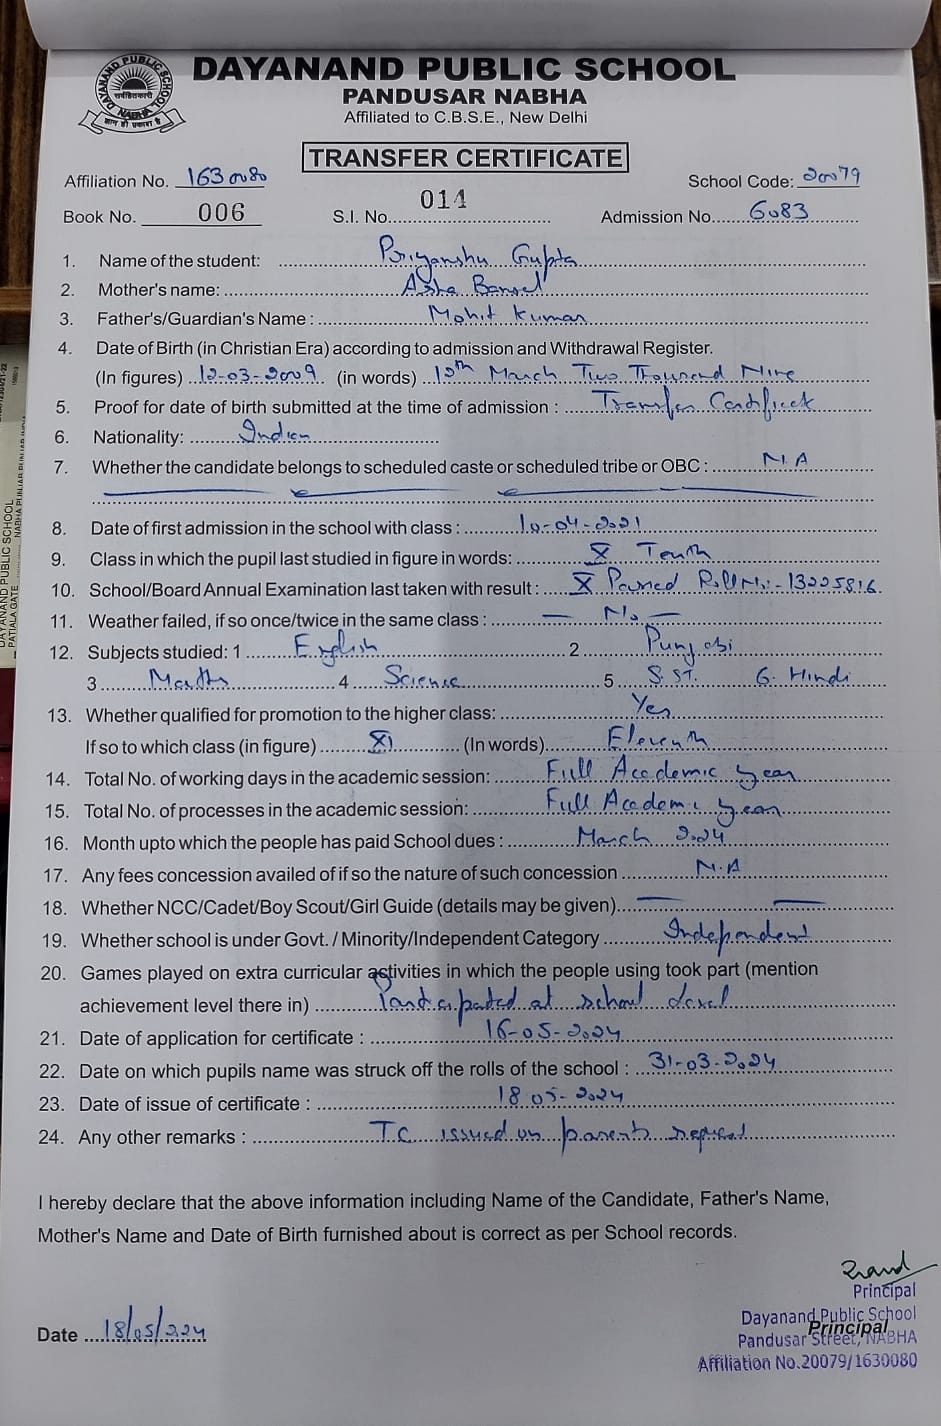 DAYANAND PUBLIC SCHOOL
PANDUSAR NABHA
Affiliated to C.B.S.E., New Delhi
DAYANAND PUBLIC SCHOOL
NABHA
TRANSFER CERTIFICATE
Affiliation No. 1630080 School Code: 20079
Book No. 006 S.I. No. 014 Admission No. 6083
1. Name of the student: Priyanshu Gupta
2. Mother's name: Asha Bansal
3. Father's/Guardian's Name : Mohit Kumar
4. Date of Birth (in Christian Era) according to admission and Withdrawal Register.
(In figures) 12-03-2009 (in words) March Two Thousand Nine
5. Proof for date of birth submitted at the time of admission : Transfer Certificate
6. Nationality: Indian
7. Whether the candidate belongs to scheduled caste or scheduled tribe or OBC : N.A
8. Date of first admission in the school with class : 10-04-2021
9. Class in which the pupil last studied in figure in words: X Tenth
10. School/Board Annual Examination last taken with result : X Passed Roll No:- 13225816
11. Weather failed, if so once/twice in the same class : — No —
12. Subjects studied: 1 English 2 Punjabi
3 Maths 4 Science 5 S.ST. 6. Hindi
13. Whether qualified for promotion to the higher class: Yes
If so to which class (in figure) XI (In words) Eleventh
14. Total No. of working days in the academic session: Full Academic year
15. Total No. of processes in the academic session: Full Academic year
16. Month upto which the people has paid School dues : March 2024
17. Any fees concession availed of if so the nature of such concession N.A
18. Whether NCC/Cadet/Boy Scout/Girl Guide (details may be given) — —
19. Whether school is under Govt. / Minority/Independent Category Independent
20. Games played on extra curricular activities in which the people using took part (mention
achievement level there in) Participated at school level
21. Date of application for certificate : 16-05-2024
22. Date on which pupils name was struck off the rolls of the school : 31-03-2024
23. Date of issue of certificate : 18-05-2024
24. Any other remarks : TC issued on parents request
I hereby declare that the above information including Name of the Candidate, Father's Name,
Mother's Name and Date of Birth furnished about is correct as per School records.
Date 18/05/2024
Principal
Dayanand Public School
Principal
Pandusar Street, NABHA
Affiliation No.20079/1630080
DAYANAND PUBLIC SCHOOL
PATIALA GATE